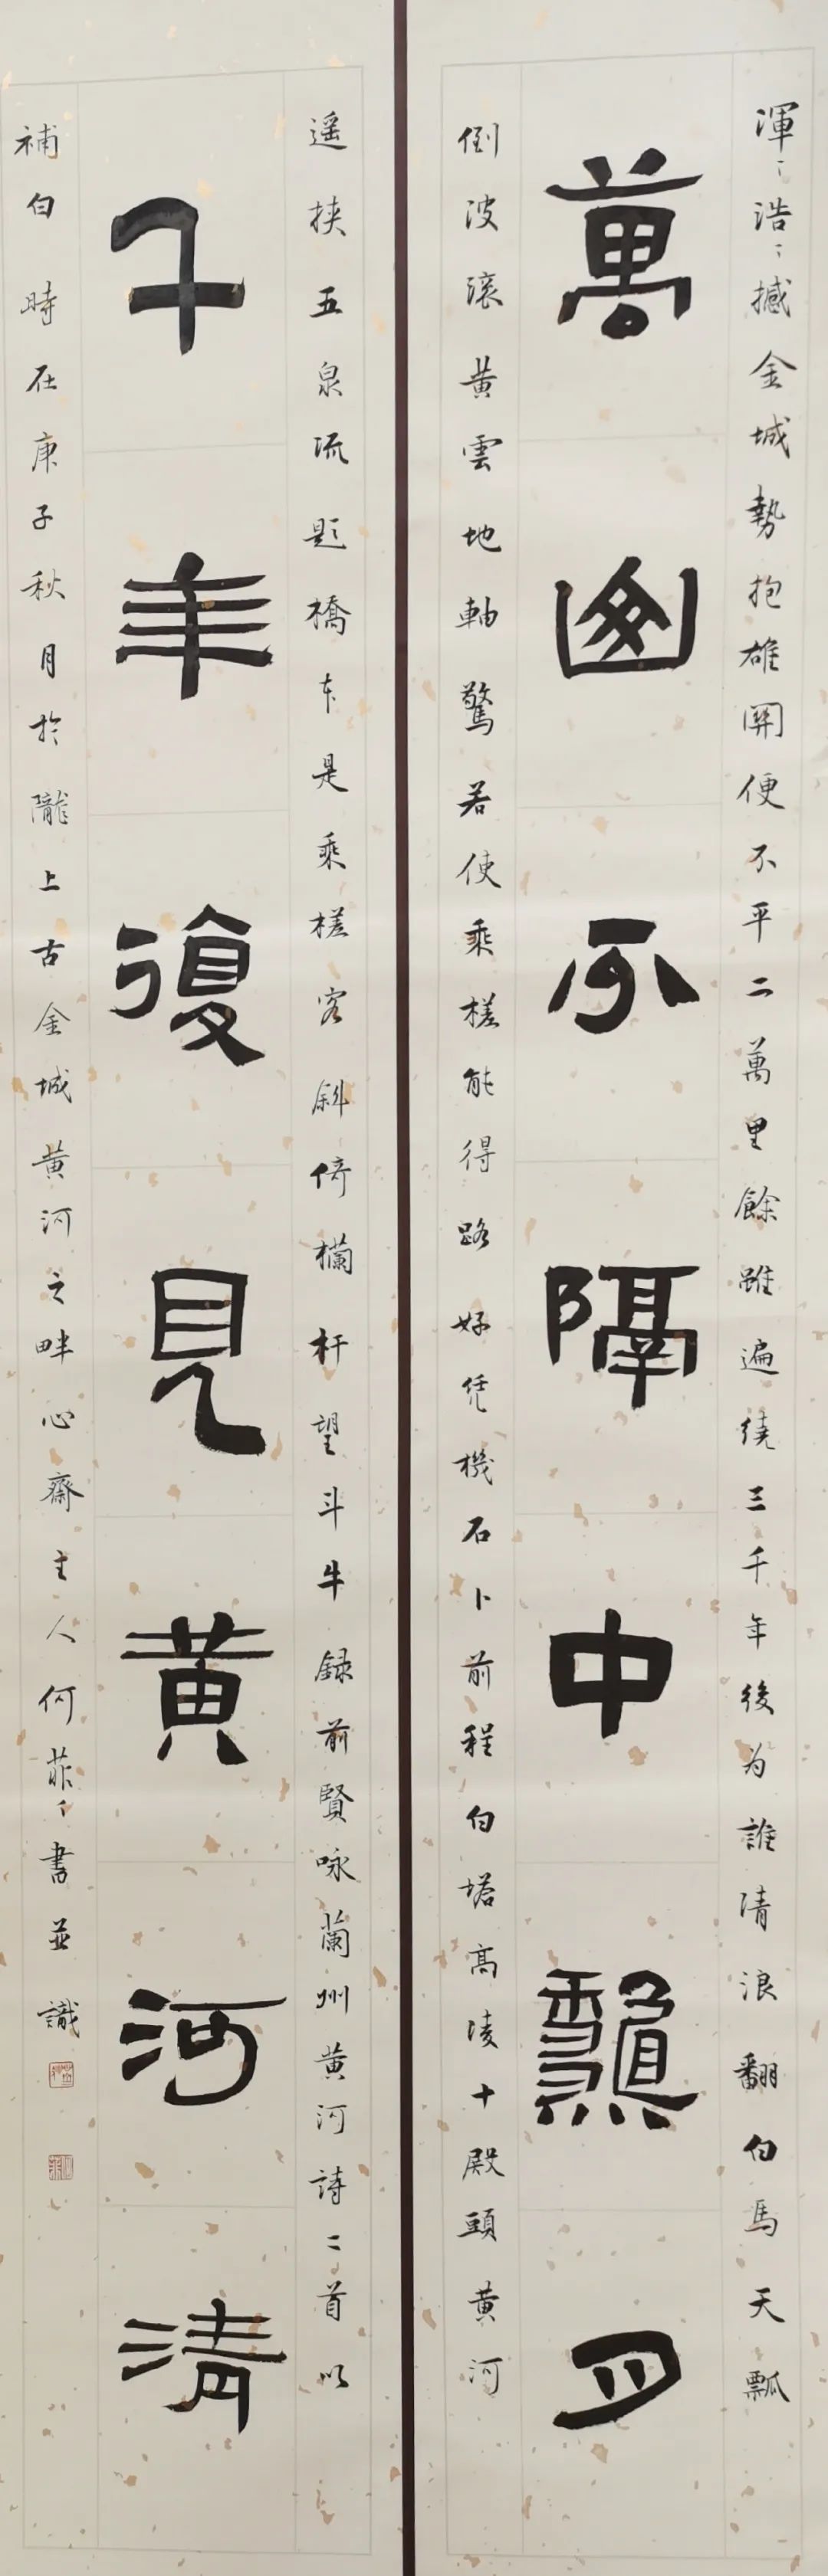 渾〻浩〻撼金城勢抱雄關便不平二萬里餘雖遍繞三千年後为誰清浪翻白馬天瓢
萬不隔中月
倒波滾黄雲地軸驚若使乘槎能得路好凭機石卜前程白塔高凌十殿頭黄河
遥挟五泉流題橋本是乘槎客斜倚欄杆望斗牛録前賢咏蘭州黄河詩二首以
千年復見黄河清
補白時在庚子秋月於隴上古金城黄河之畔心齋主人何菲〻書並識